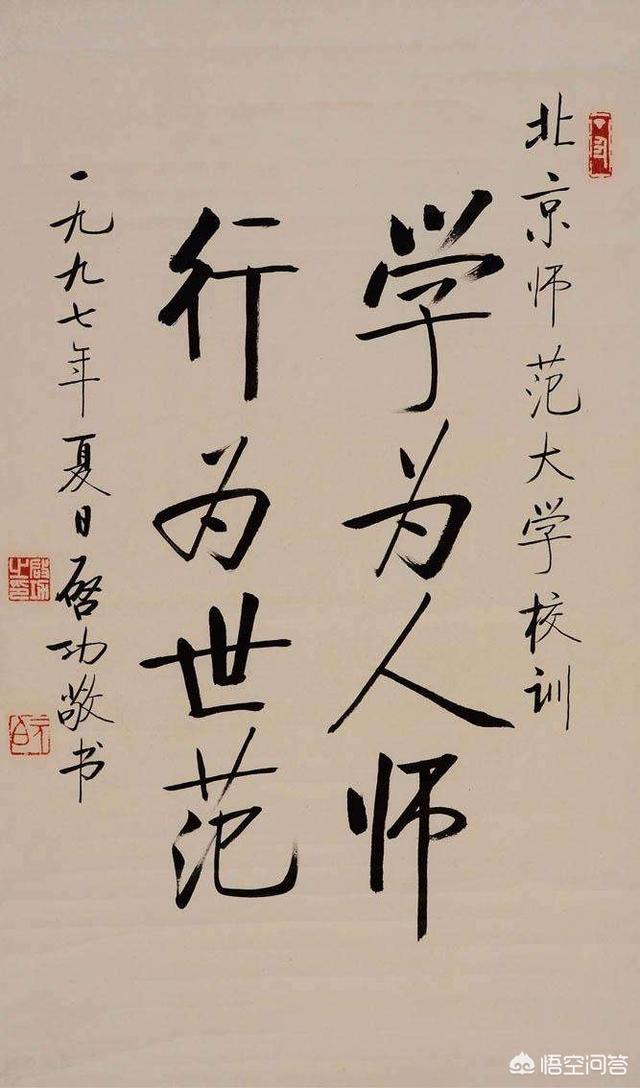 北京师范大学校训
学为人师
行为世范
一九九七年夏日启功敬书
启功之印
元白
悟空问答